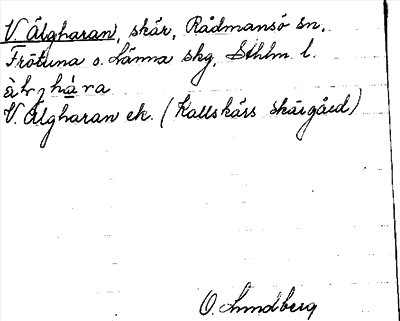 V. Älgharan, skär, Rådmansö sn,
Frötuna o. Länna skg, Sthlm l.
V. Älgharan ek. (Kallskärs skärgård)
O. Lundberg